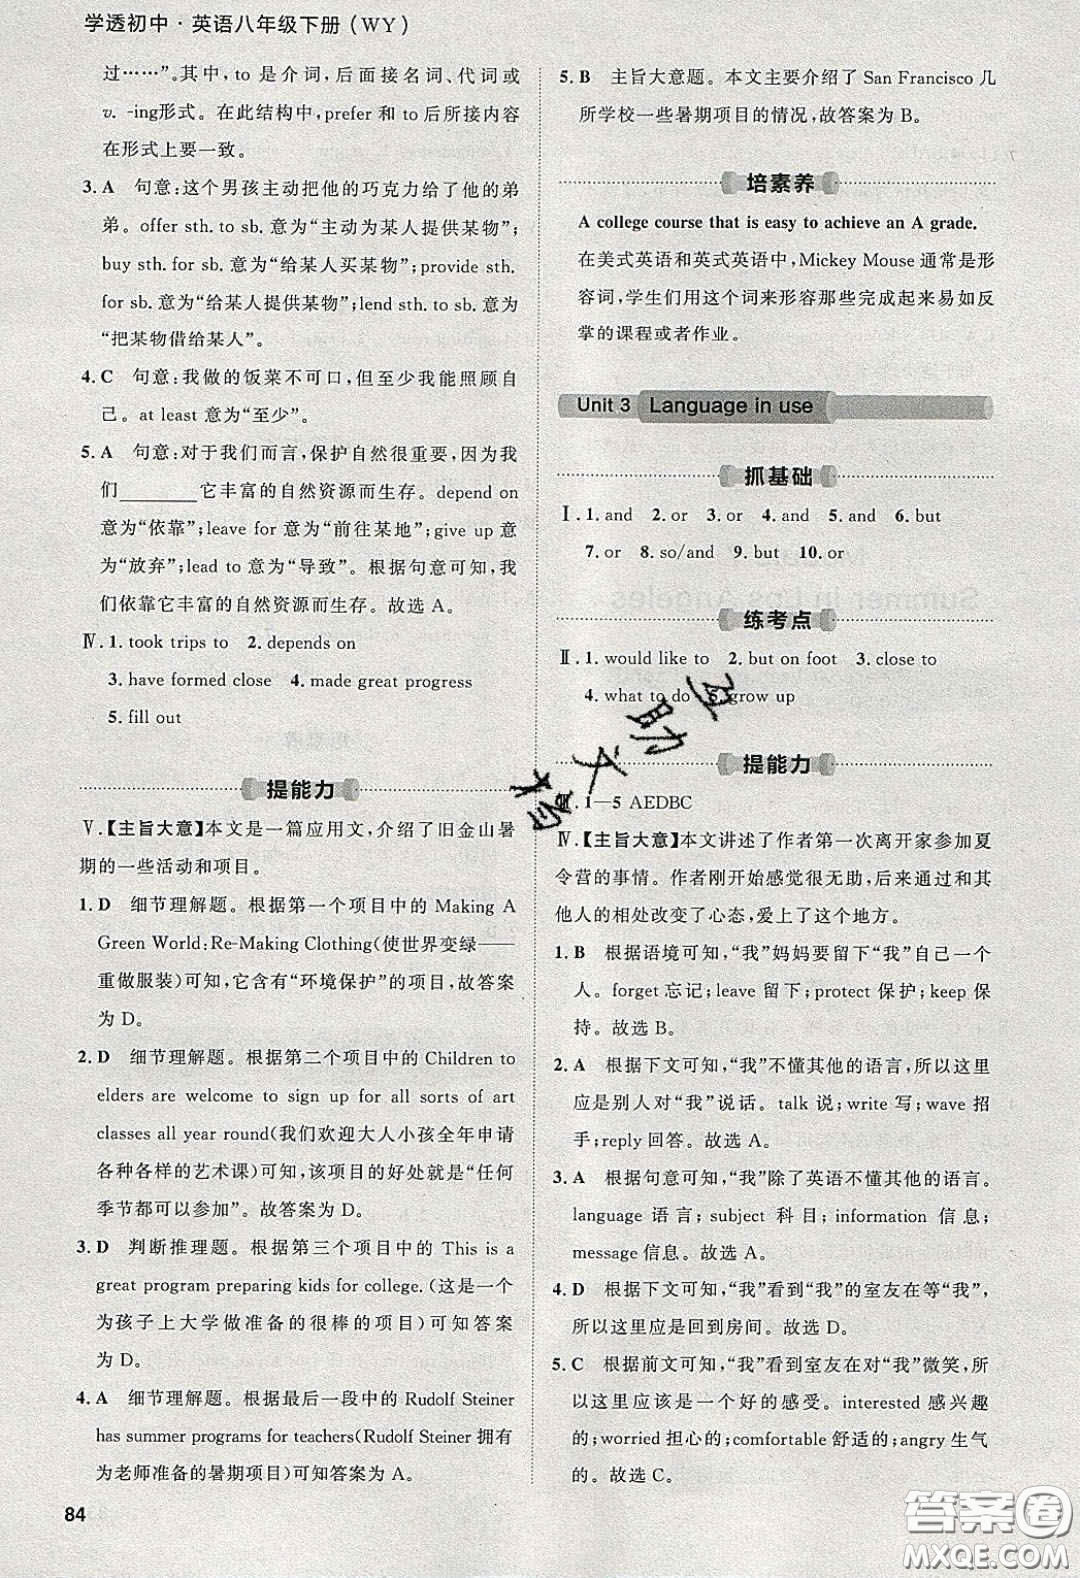 学透初中·英语八年级下册(WY)
过……”。其中,to 是介词,后面接名词、代词或
v. -ing形式。在此结构中,prefer 和 to 后接内容
在形式上要一致。
3. A 句意:这个男孩主动把他的巧克力给了他的弟
弟。offer sth. to sb. 意为“主动为某人提供某物”;
buy sth. for sb. 意为“给某人买某物”;provide sth.
for sb. 意为“给某人提供某物”;lend sth. to sb. 意为
“把某物借给某人”。
4. C 句意:我做的饭菜不可口,但至少我能照顾自
己。at least 意为“至少”。
5. A 句意:对于我们而言,保护自然很重要,因为我
们________它丰富的自然资源而生存。depend on
意为“依靠”;leave for 意为“前往某地”;give up 意
为“放弃”;lead to 意为“导致”。根据句意可知,我
们依靠它丰富的自然资源而生存。故选 A。
Ⅳ. 1. took trips to 2. depends on
3. have formed close 4. made great progress
5. fill out
提能力
Ⅴ.【主旨大意】本文是一篇应用文,介绍了旧金山暑
期的一些活动和项目。
1. D 细节理解题。根据第一个项目中的 Making A
Green World:Re-Making Clothing(使世界变绿——
重做服装)可知,它含有“环境保护”的项目,故答案
为 D。
2. D 细节理解题。根据第二个项目中的 Children to
elders are welcome to sign up for all sorts of art
classes all year round(我们欢迎大人小孩全年申请
各种各样的艺术课)可知,该项目的好处就是“任何
季节都可以参加”。故答案为 D。
3. D 判断推理题。根据第三个项目中的 This is a
great program preparing kids for college.(这是一个
为孩子上大学做准备的很棒的项目)可知答案
为 D。
4. A 细节理解题。根据最后一段中的 Rudolf Steiner
has summer programs for teachers(Rudolf Steiner 拥有
为老师准备的暑期项目)可知答案为 A。
84
5. B 主旨大意题。本文主要介绍了 San Francisco 几
所学校一些暑期项目的情况,故答案为 B。
培素养
A college course that is easy to achieve an A grade.
在美式英语和英式英语中,Mickey Mouse 通常是形
容词,学生们用这个词来形容那些完成起来易如反
掌的课程或者作业。
Unit 3 Language in use
抓基础
Ⅰ. 1. and 2. or 3. or 4. and 5. and 6. but
7. or 8. so/and 9. but 10. or
练考点
Ⅱ. 1. would like to 2. but on foot 3. close to
4. what to do 5. grow up
提能力
Ⅲ. 1—5 AEDBC
Ⅳ.【主旨大意】本文讲述了作者第一次离开家参加夏
令营的事情。作者刚开始感觉很无助,后来通过和其
他人的相处改变了心态,爱上了这个地方。
1. B 根据语境可知,“我”妈妈要留下“我”自己一个
人。forget 忘记;leave 留下;protect 保护;keep 保
持。故选 B。
2. A 根据下文可知,“我”不懂其他的语言,所以这里
应是别人对“我”说话。talk 说;write 写;wave 招
手;reply 回答。故选 A。
3. A 根据句意可知,“我”除了英语不懂其他的语言。
language 语言;subject 科目;information 信息;
message 信息。故选 A。
4. D 根据下文可知,“我”看到“我”的室友在等“我”,
所以这里应是回到房间。故选 D。
5. C 根据前文可知,“我”看到室友在对“我”微笑,所
以这里应该是一个好的感受。interested 感兴趣
的;worried 担心的;comfortable 舒适的;angry 生气
的。故选 C。
互助文
答案圈
MXQE.COM